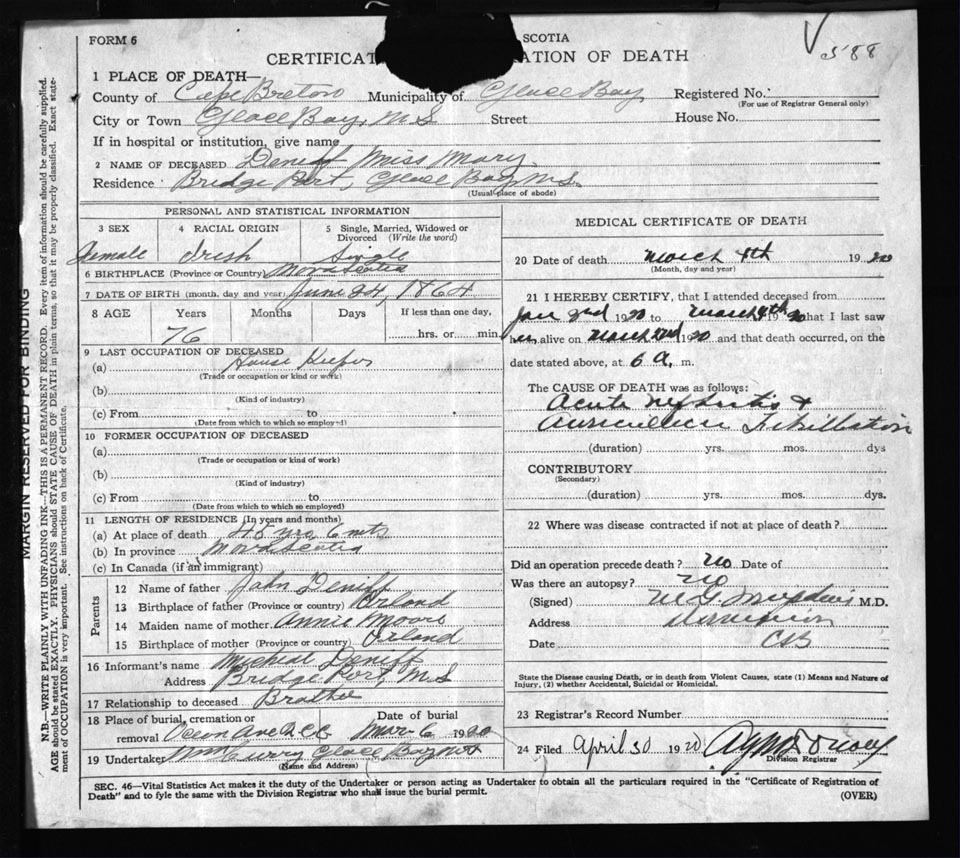 588
FORM 6
SCOTIA
CERTIFICAT ATION OF DEATH
1 PLACE OF DEATH—
County of Cape Breton Municipality of Glace Bay Registered No.
(For use of Registrar General only)
City or Town Glace Bay, N.S Street House No.
If in hospital or institution, give name
2 NAME OF DECEASED Deniff Miss Mary
Residence Bridge Port, Glace Bay N.S.
(Usual place of abode)
PERSONAL AND STATISTICAL INFORMATION
3 SEX 4 RACIAL ORIGIN 5 Single, Married, Widowed or Divorced (Write the word)
Female Irish Single
6 BIRTHPLACE (Province or Country) Nova Scotia
7 DATE OF BIRTH (month, day and year) June 24, 1864
8 AGE Years Months Days If less than one day,
76 hrs. or min
9 LAST OCCUPATION OF DECEASED
(a) House Keeper
(Trade or occupation or kind or work)
(b)
(Kind of industry)
(c) From to
(Date from which to which so employed)
10 FORMER OCCUPATION OF DECEASED
(a)
(Trade or occupation or kind of work)
(b)
(Kind of industry)
(c) From to
(Date from which to which so employed)
11 LENGTH OF RESIDENCE (In years and months)
(a) At place of death 45 yrs 6 mts
(b) In province Nova Scotia
(c) In Canada (if an immigrant)
Parents
12 Name of father John Deniff
13 Birthplace of father (Province or country) Irland
14 Maiden name of mother Annie Moore
15 Birthplace of mother (Province or country) Irland
16 Informant's name Micheal Deniff
Address Bridge Port, N.S
17 Relationship to deceased Brother
18 Place of burial, cremation or Date of burial
removal Ocean Ave Mar 6 1920
19 Undertaker Curry Glace Bay N.S
(Name and Address)
MEDICAL CERTIFICATE OF DEATH
20 Date of death March 4th 1920
(Month, day and year)
21 I HEREBY CERTIFY, that I attended deceased from
Jan 2nd 1920 to March 4th 1920 that I last saw
her alive on March 2nd 1920 and that death occurred, on the
date stated above, at 6 A. m.
The CAUSE OF DEATH was as follows:
Acute Nephritis &
Auricular Fibrillation
(duration) yrs. mos. dys
CONTRIBUTORY
(Secondary)
(duration) yrs. mos. dys.
22 Where was disease contracted if not at place of death?
Did an operation precede death? No Date of
Was there an autopsy? No
(Signed) M.D.
Address Dominion
Date C.B
State the Disease causing Death, or in death from Violent Causes, state (1) Means and Nature of
Injury, (2) whether Accidental, Suicidal or Homicidal.
23 Registrar's Record Number
24 Filed April 30 1920
Division Registrar
SEC. 46—Vital Statistics Act makes it the duty of the Undertaker or person acting as Undertaker to obtain all the particulars required in the "Certificate of Registration of
Death" and to fyle the same with the Division Registrar who shall issue the burial permit.
(OVER)
MARGIN RESERVED FOR BINDING
N.B.—WRITE PLAINLY WITH UNFADING INK—THIS IS A PERMANENT RECORD. Every item of information should be carefully supplied.
AGE should be stated EXACTLY. PHYSICIANS should STATE CAUSE OF DEATH in plain terms, so that it may be properly classified. Exact state-
ment of OCCUPATION is very important. See instructions on back of Certificate.